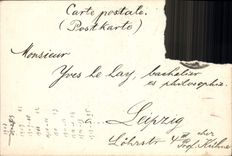 Carte postale.
(Postkarte)
Monsieur
Yves le Lay, bachelier
ès philosophie.
à Leipzig
Löhrstr 4 III
Prof. Kühne